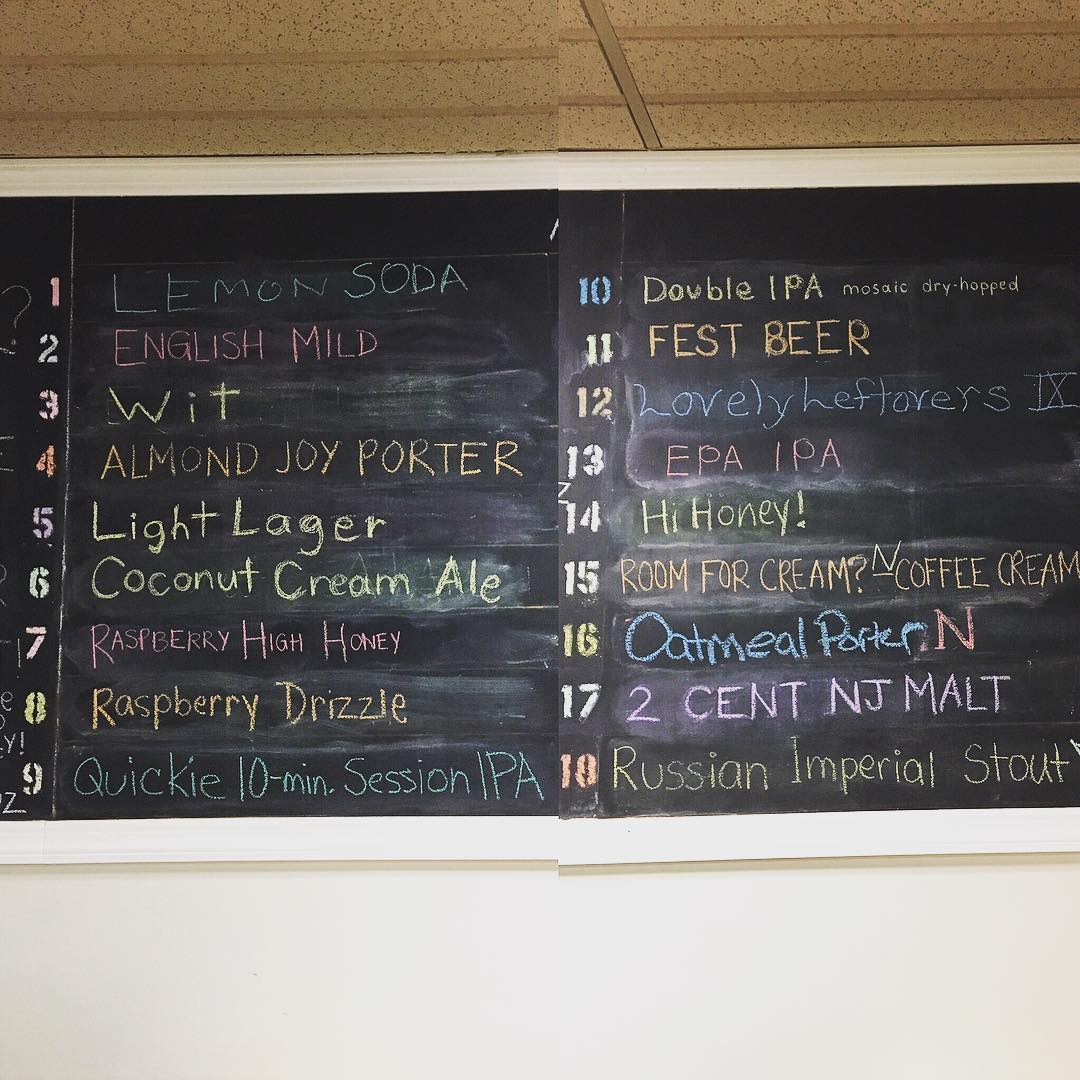 1 LEMON SODA
2 ENGLISH MILD
3 Wit
4 ALMOND JOY PORTER
5 Light Lager
6 Coconut Cream Ale
7 RASPBERRY HIGH HONEY
8 Raspberry Drizzle
9 Quickie 10-min. Session IPA
10 Double IPA mosaic dry-hopped
11 FEST BEER
12 Lovely Leftovers IX
13 EPA IPA
14 Hi Honey!
15 ROOM FOR CREAM? N COFFEE CREAM
16 Oatmeal Porter N
17 2 CENT NJ MALT
18 Russian Imperial Stout